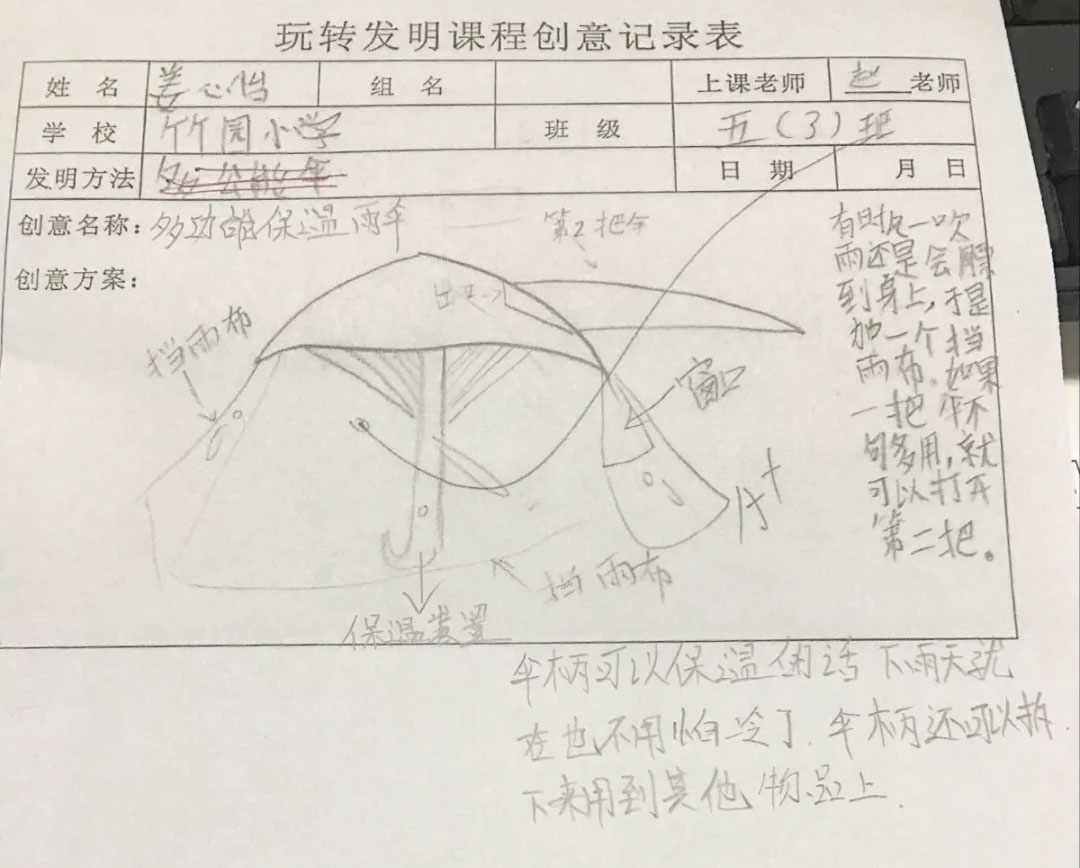 玩转发明课程创意记录表
姓 名 姜心怡 组 名 上课老师 赵 老师
学 校 竹园小学 班 级 五(3)班
发明方法 日 期 月 日
创意名称：多功能保温雨伞
创意方案：
第2把伞
出口
挡雨布
窗口
挡雨布
保温装置
有时风一吹
雨还是会飘
到身上,于是
加一个挡
雨布.如果
一把伞不
句多用,就
可以打开
第二把。
伞柄可以保温的话 下雨天就
在也不用怕冷了.伞柄还可以拆
下来用到其他物品上.